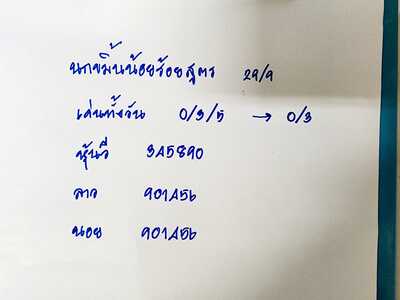 นกขมิ้นน้อยร้อยสูตร 29/9
เด่นทั้งวัน 0/3/5 → 0/3
หุ้นวี 345890
ลาว 901456
นอย 901456